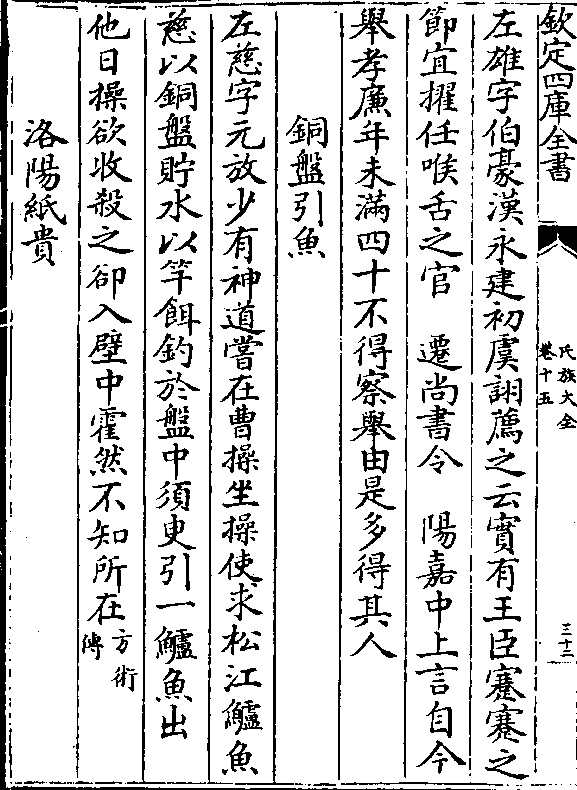 欽定四庫全書
氏族大全
卷十五
三十二
左雄字伯豪漢永建初虞詡薦之云實有王臣蹇蹇之
節宜擢任喉舌之官　遷尚書令　陽嘉中上言自今
舉孝廉年未滿四十不得察舉由是多得其人
銅盤引魚
左慈字元放少有神道嘗在曹操坐操使求松江鱸魚
慈以銅盤貯水以竿餌釣於盤中須臾引一鱸魚出
他日操欲收殺之卻入壁中霍然不知所在方術
傳
洛陽紙貴